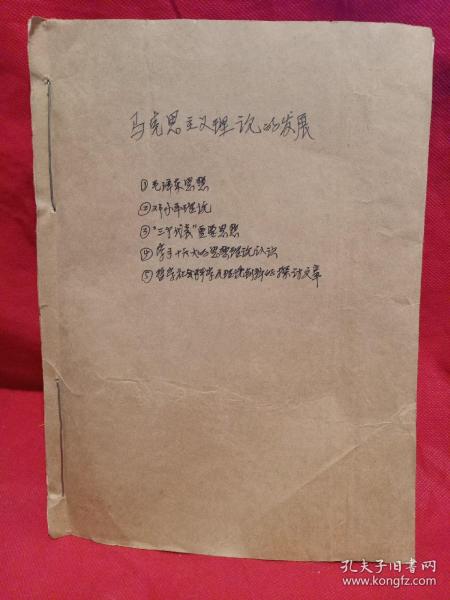 马克思主义理论的发展
①毛泽东思想
②邓小平理论
③“三个代表”重要思想
④学习十六大的思想理论认识
⑤哲学社会科学及理论创新的探讨文章
孔夫子旧书网
www.kongfz.com